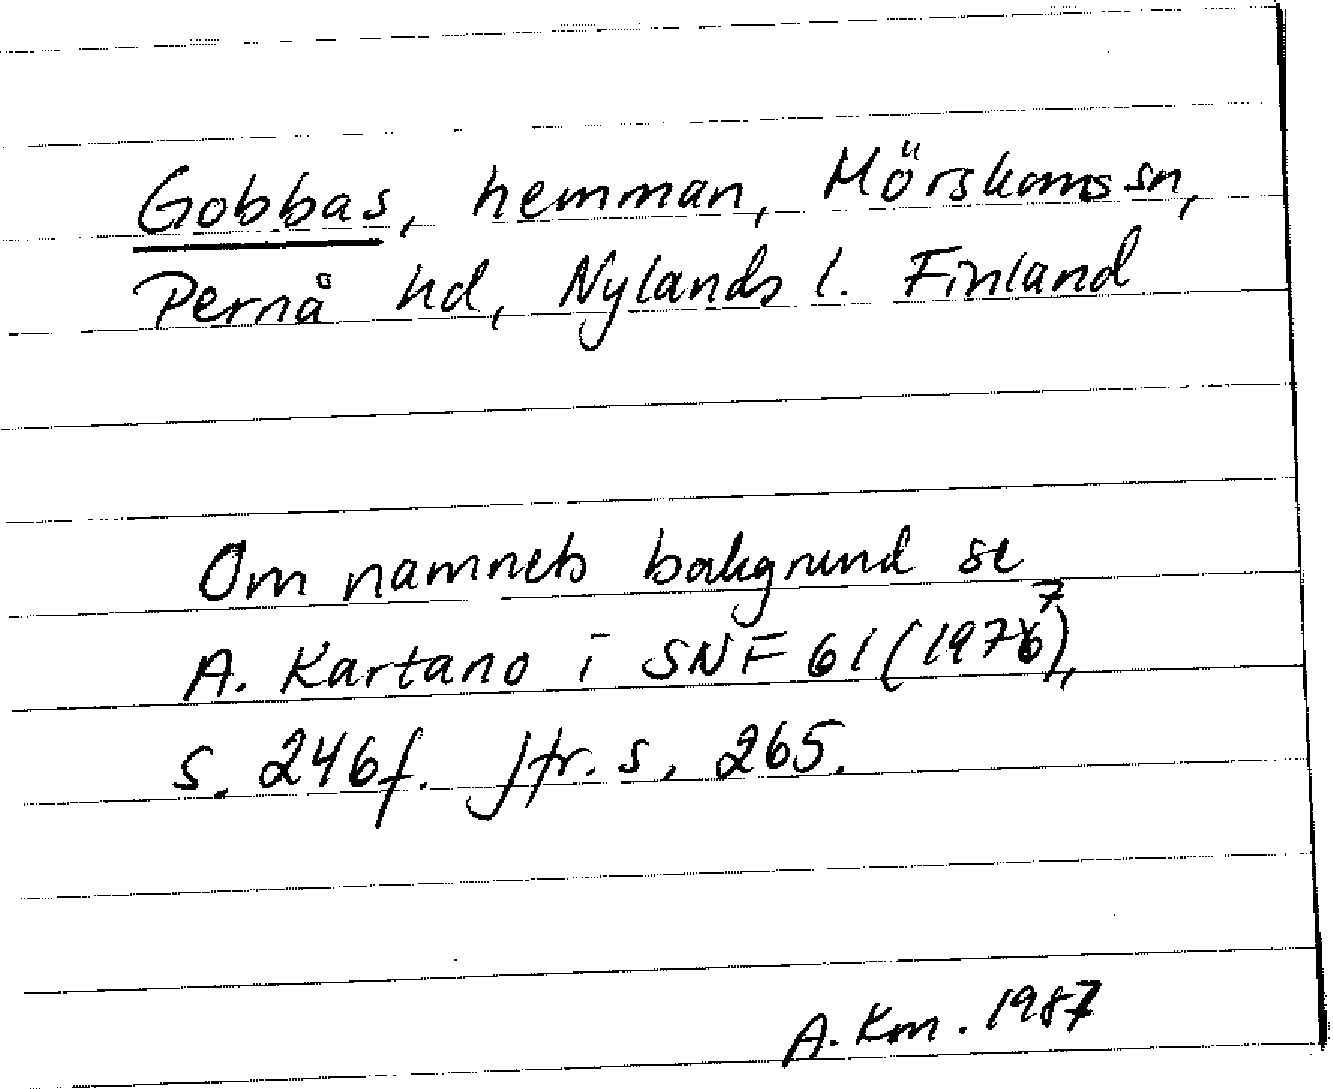 Gobbas, hemman, Mörskoms sn,
Pernå hd, Nylands l. Finland
Om namnets bakgrund se
A. Kartano i SNF 61 (1977),
s. 246f. Jfr. s. 265.
A. Km. 1987